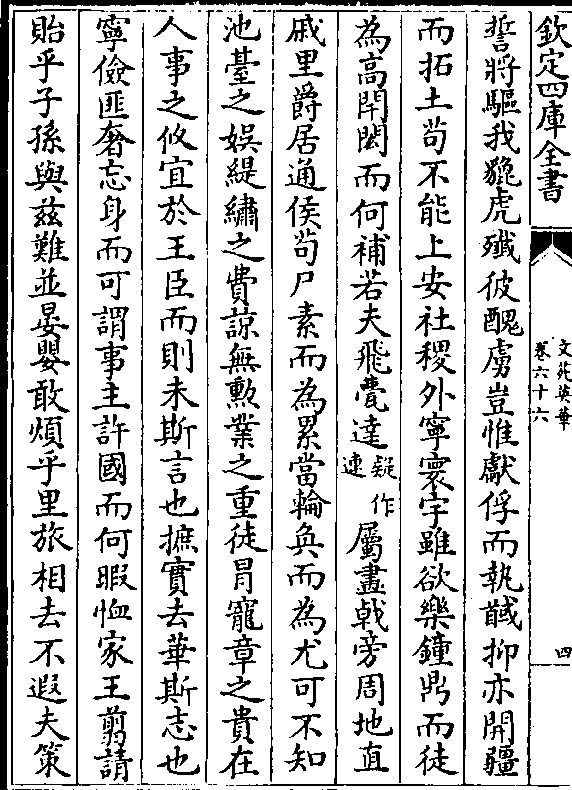 欽定四庫全書
文苑英華
卷六十六
四
誓將驅我貔虎殲彼醜虜豈惟獻俘而執馘抑亦開疆
而拓土苟不能上安社稷外寧寰宇雖欲樂鐘鼎而徒
為高閈閎而何補若夫飛甍達疑作連屬畫戟旁周地直
戚里爵居通侯苟尸素而為累當輪奐而為尤可不知
池臺之娛緹繡之費諒無勲業之重徒冐寵章之貴在
人事之攸宜於王臣而則未斯言也摭實去華斯志也
寧儉匪奢忘身而可謂事主許國而何暇恤家王翦請
貽乎子孫與兹難並晏嬰敢煩乎里旅相去不遐夫策